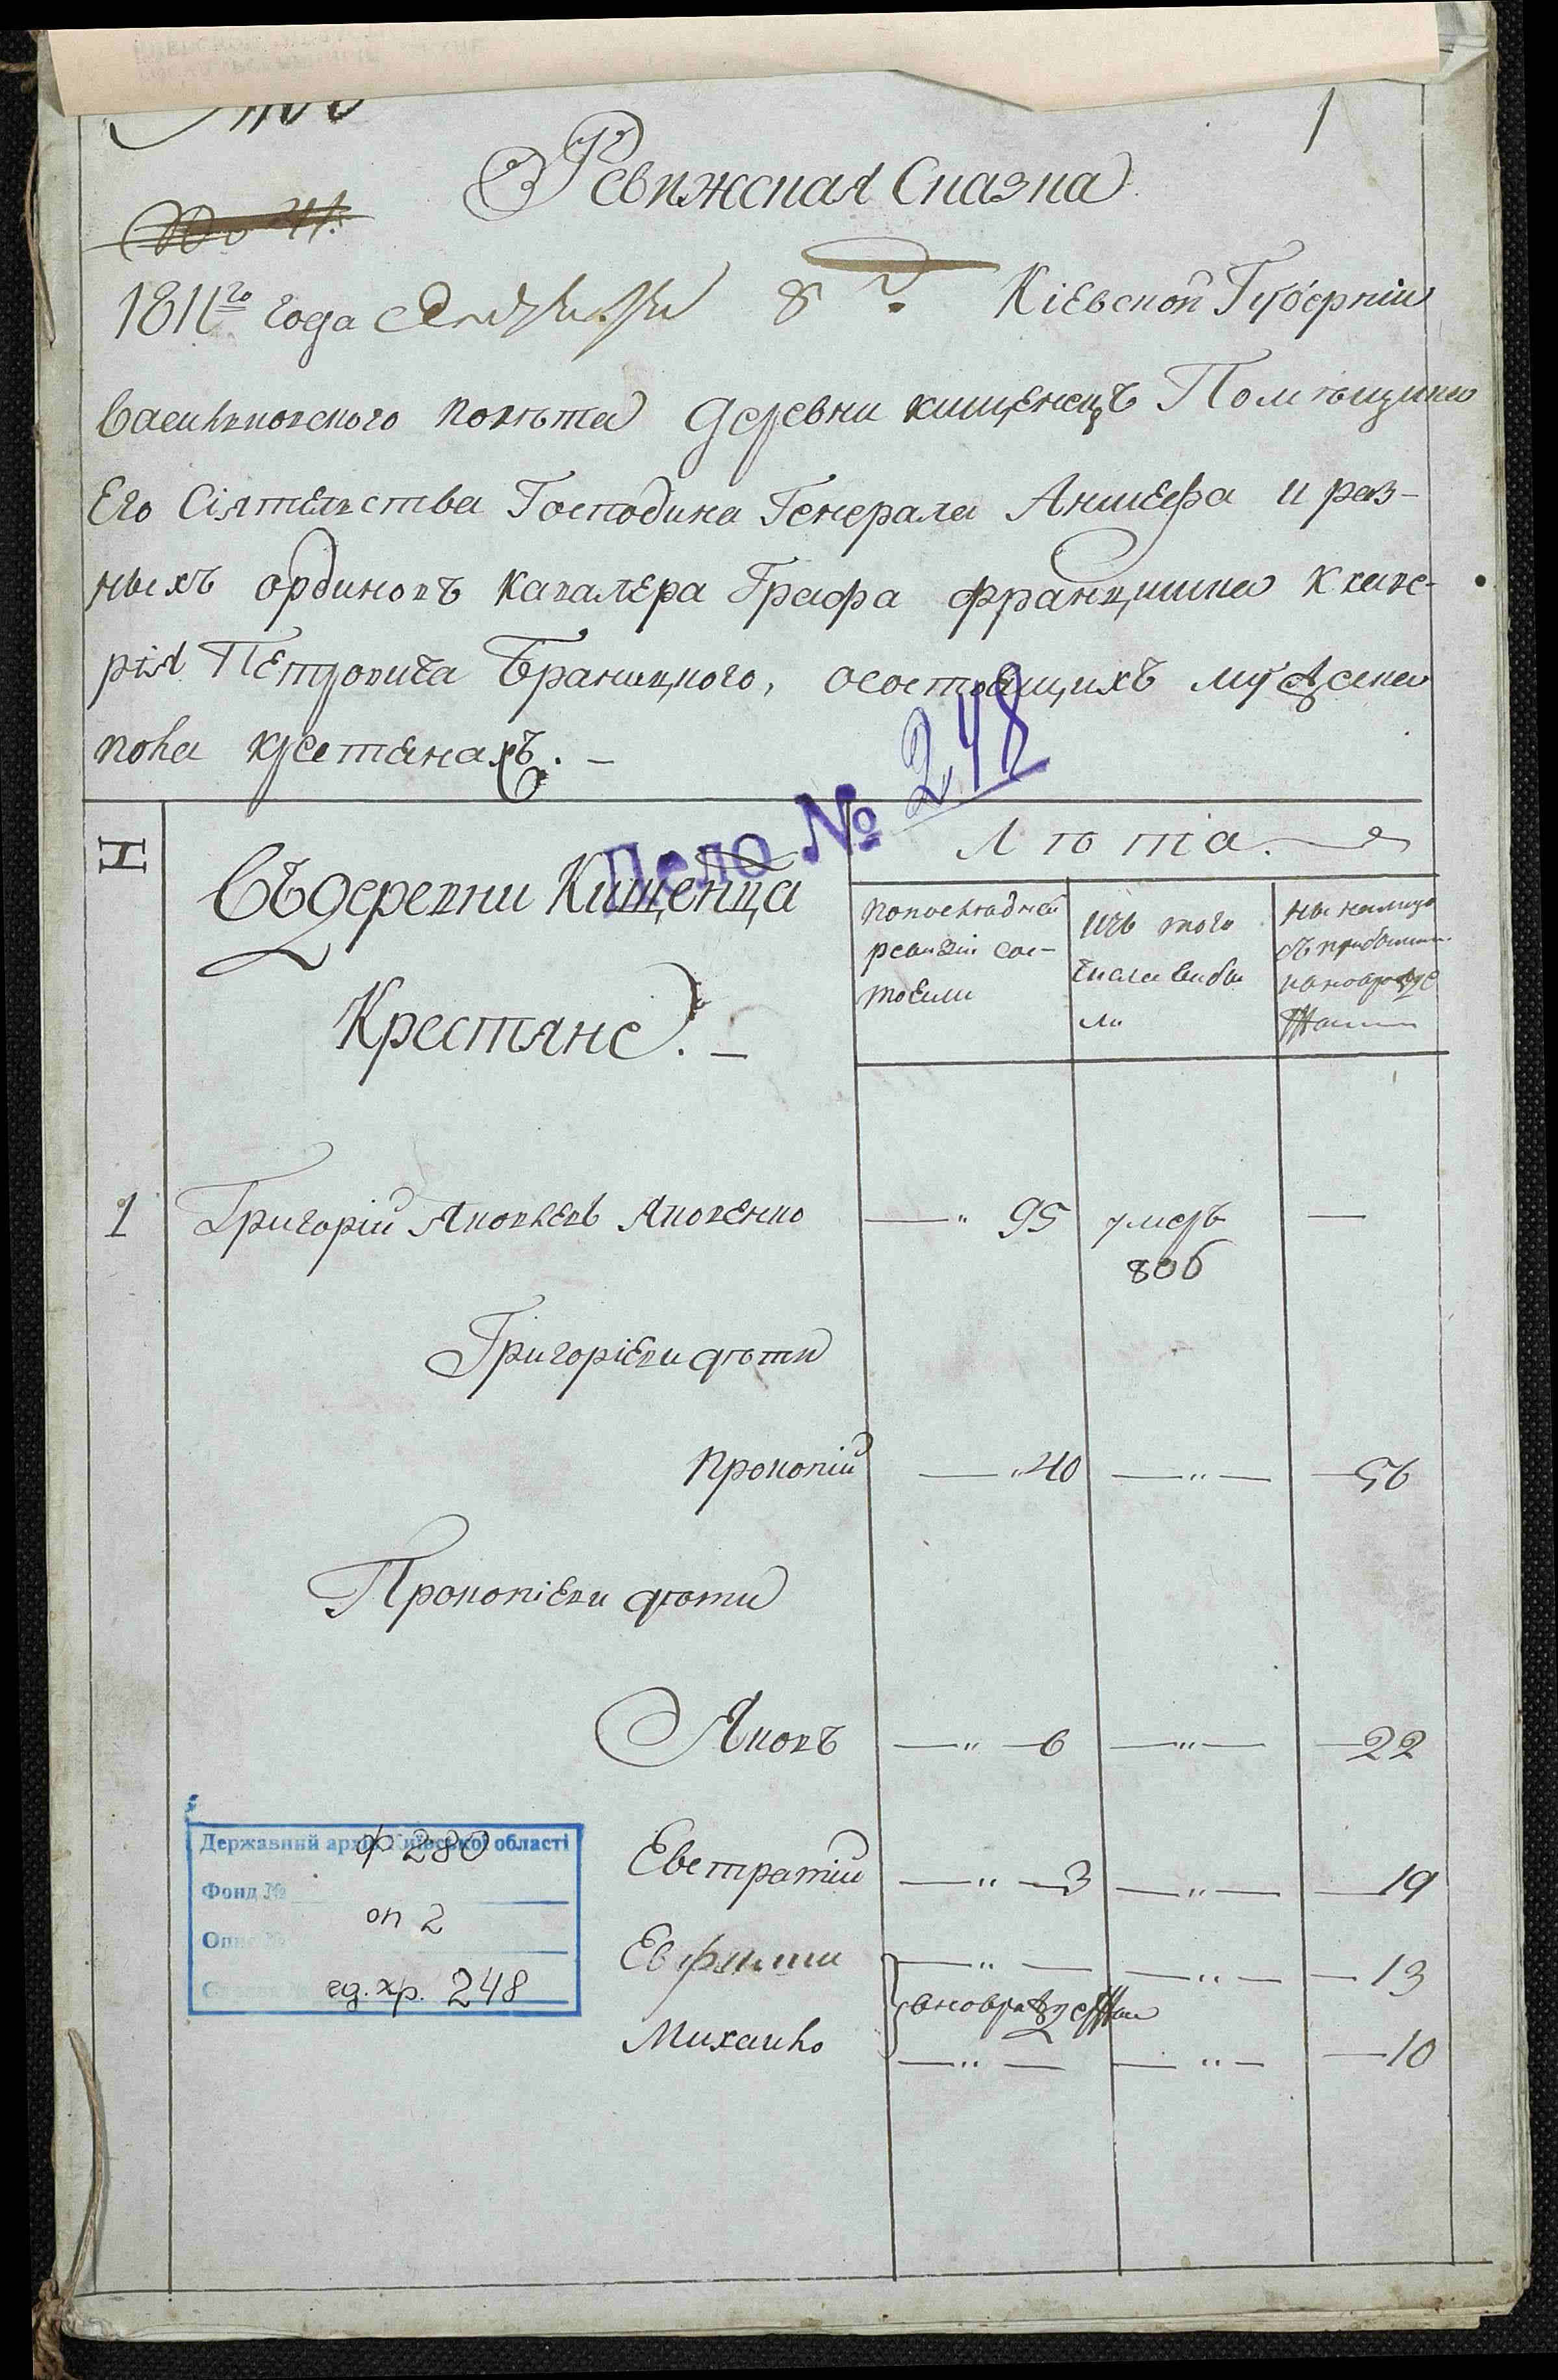 1
Ревижсная Сказка
1811го года 8 Кіевской Губерніи
Васильковского повѣта деревни кищенецъ Помѣщика
Его Сіятельства Господина Генерала Аншефа и раз-
ныхъ ординовъ кавалера Графа францишка Ксаве-
рія Петровича Браницкого, осостоящихъ мужеска
пола крестянахъ. –
Дело № 248
Н
Въ деревни Кищенца
Крестяне. –
Лѣта.
попоследней
ревизіи сос-
тоели
изъ того
числа выбы
ли
ны налицо
съ прибылими
и новорожде
нными
1 Григорій Яковлевъ Яковенко —" 95 умеръ —
806
Григоріеви дѣти
Прокопій —" 40 —"— —56
Прокопіеви дѣти
Яковъ —" —6 —"— —22
Евстратій —" —3 —"— —19
Евфимий —" — —"— —13
вноврожденни
Михайло —" — —"— —10
Державний архів Київської області
ф 280
Фонд №
оп 2
Опис №
ед. хр. 248